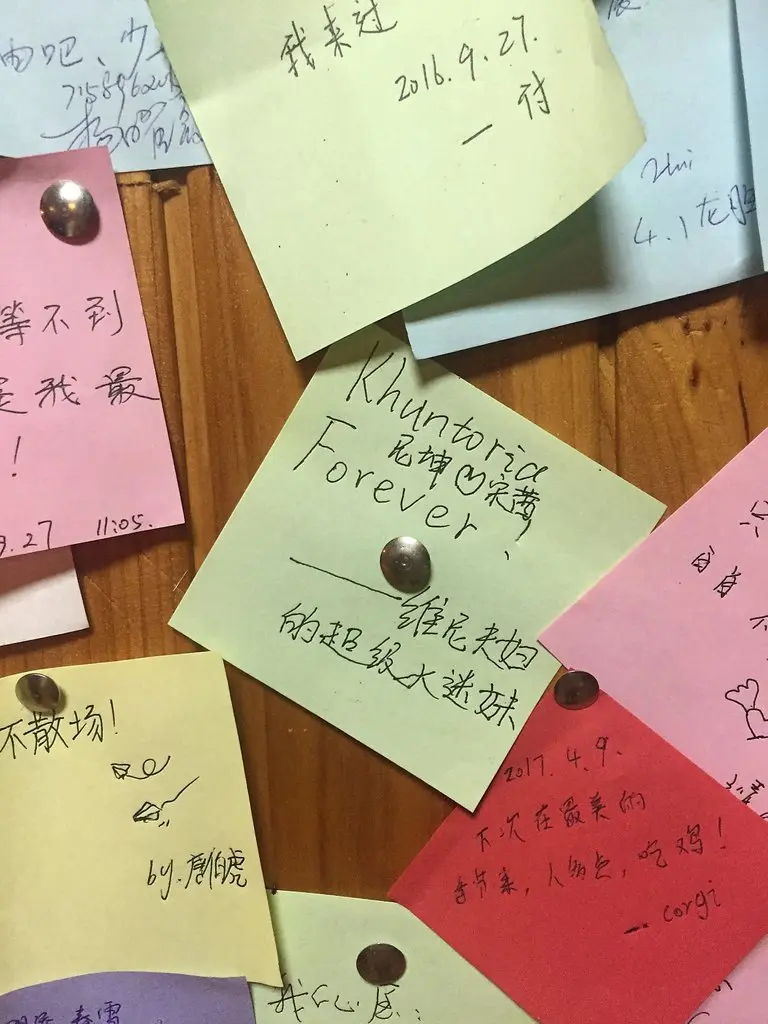 我来过
2016.9.27.
一 付
4.1 龙胜
等不到
是我最
!
9.27 11:05.
Khuntoria
尼坤♡宋茜
Forever、
——维尼夫妇
的超级大迷妹
不散场!
by.唐伯虎
只
自身
不
2017.4.9.
下次在最美的
季节来,人多点,吃鸡!
— corgi
我心愿: